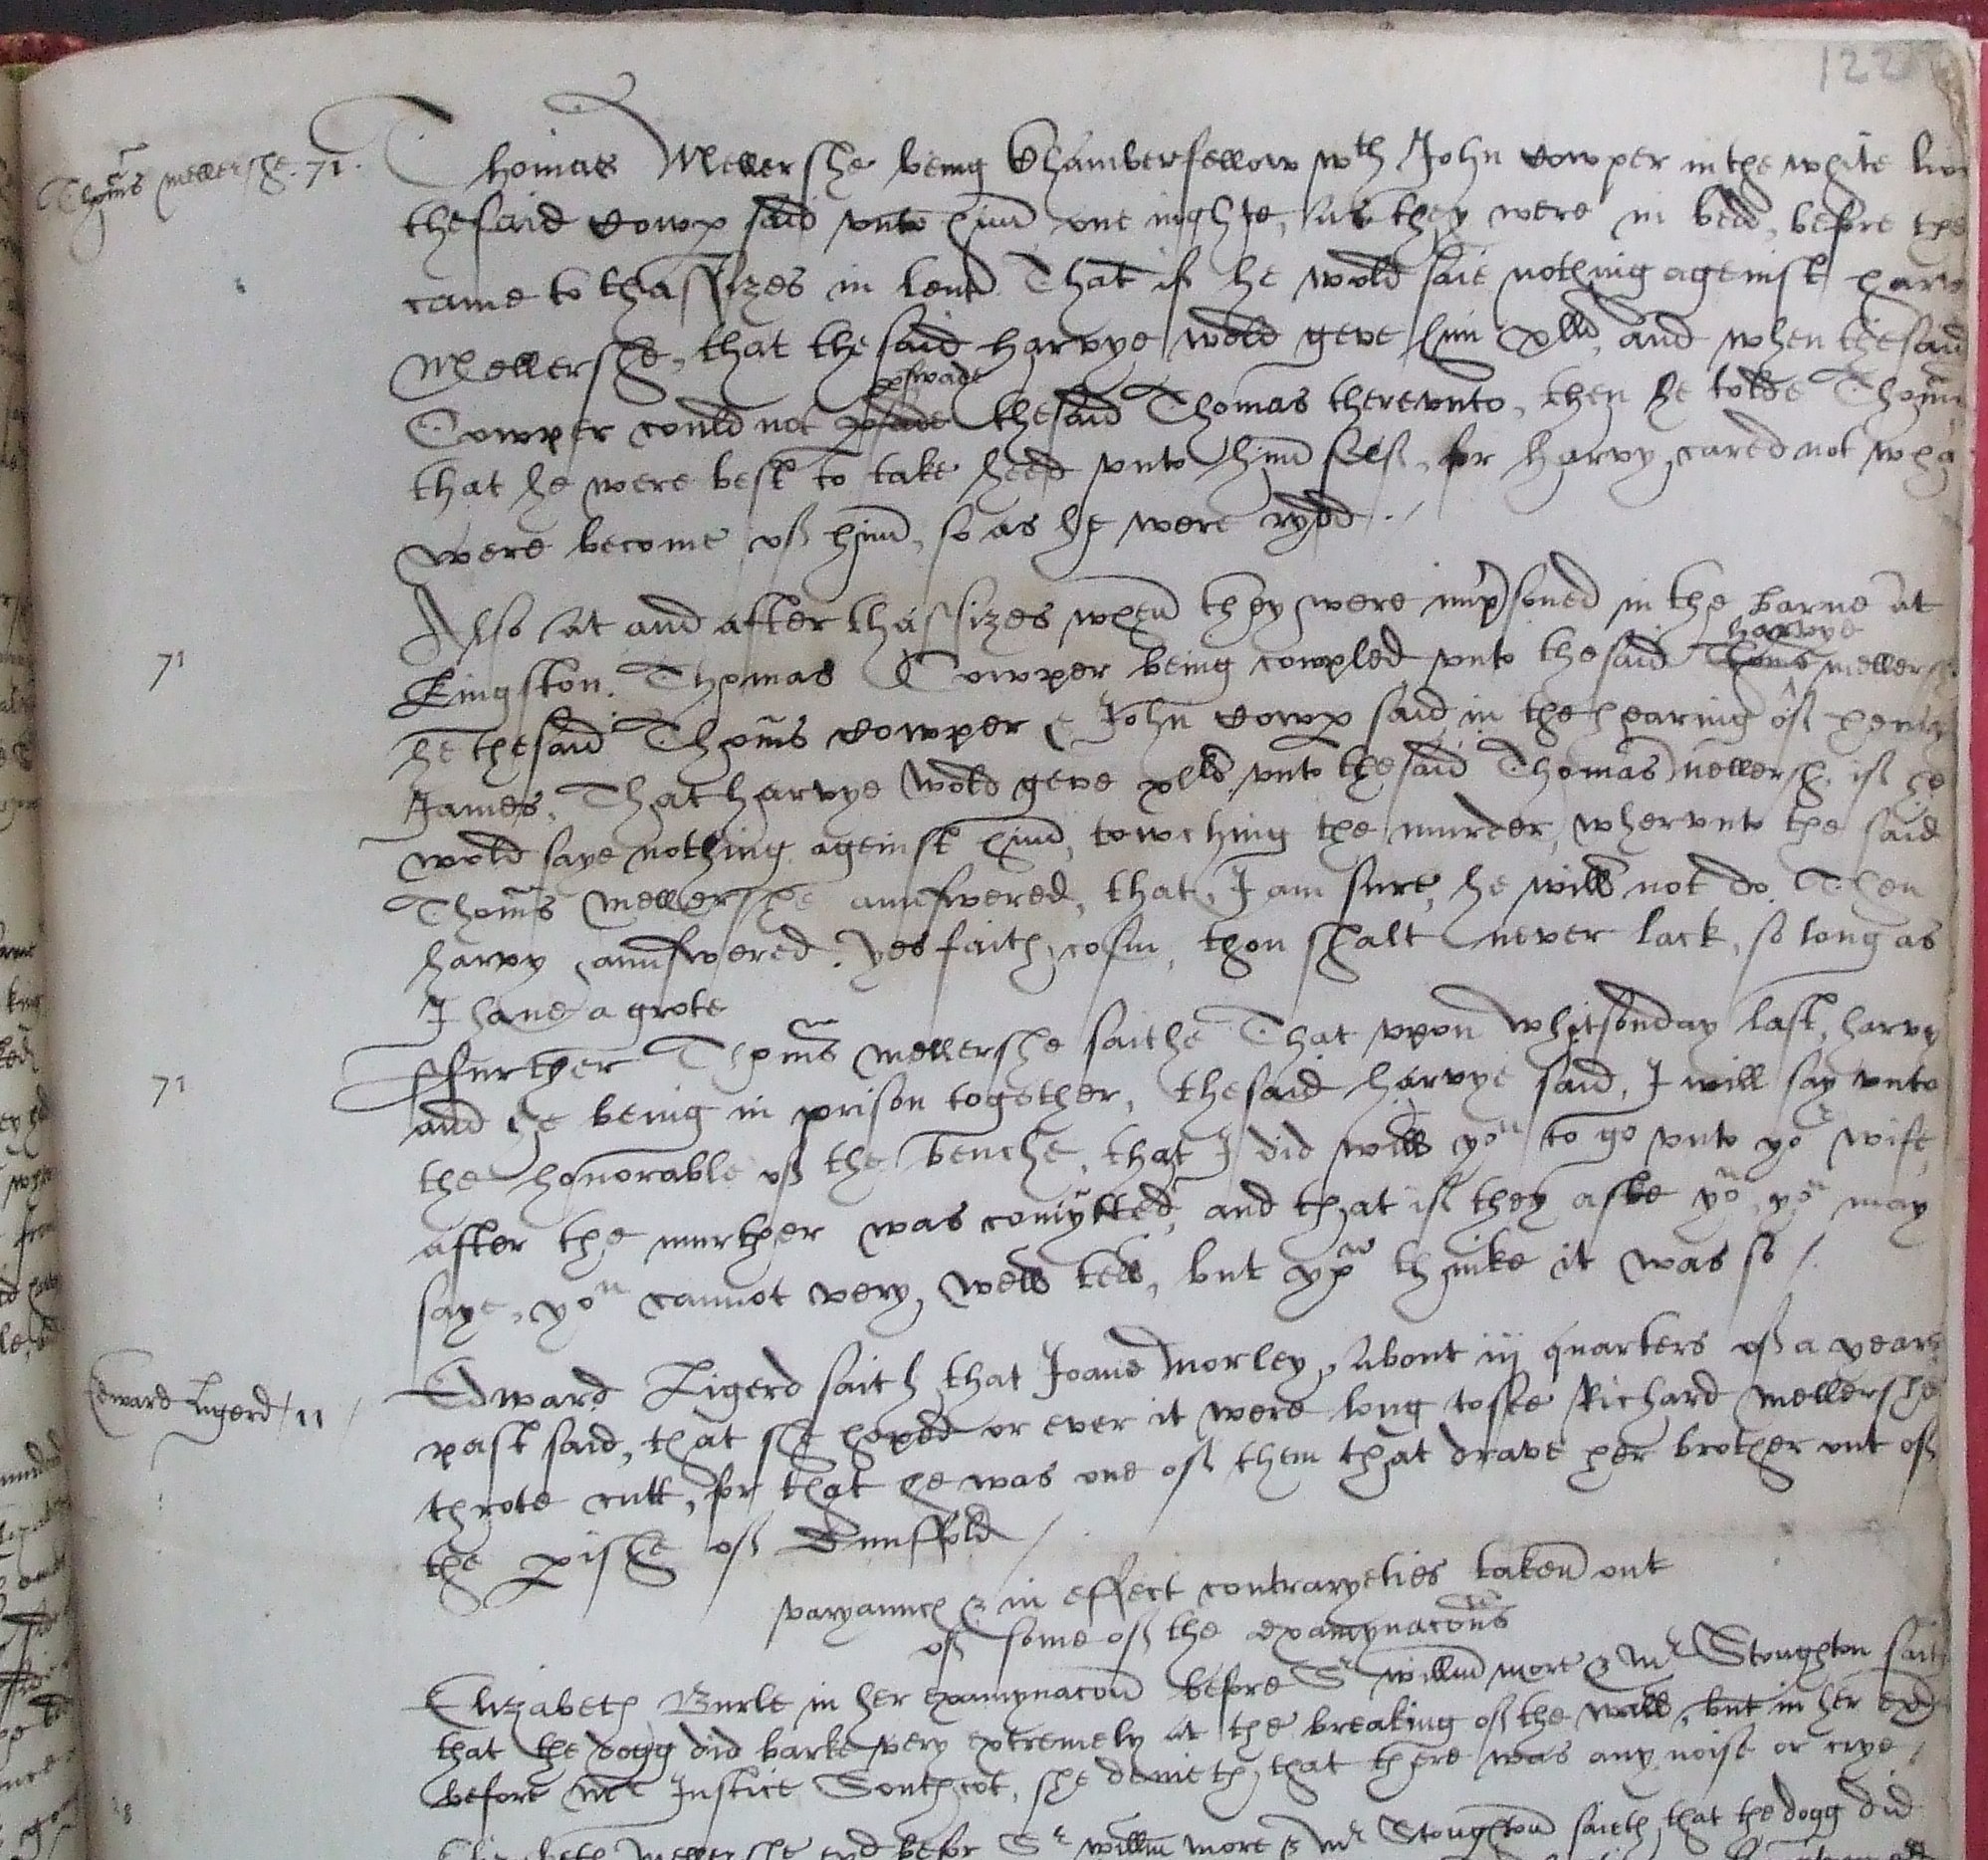 122
Thoms mellershe. 71.
Thomas Mellershe being Chamberfellow wth John Cowper in the white
the said Cowp said vnto him one nighte, as they were in bedd, before the
came to thassizes in lent. That if he wold saie nothing ageinst
Mellershe, that the said Harvye wold geve him xlli, and when the said
pswade
Cowper could not the said Thomas therevnto, then he tolde
that he were best to take heed vnto him self, for Harvy cared not
were become of him, so as he were rydd./
Also at and after thassizes when they were imprsoned in the barne at
harvye
71
Kingston. Thomas Cowper being cowpled vnto the said Thoms mellersh.
he the said Thoms Cowper & John Cowp said in the hearing of
James. That harvye wold geve xlli vnto the said Thomas mellersh. if he
wold saye nothing ageinst him, towching the murder, whervnto the said
Thoms mellershe aunswered, that, I am sure, he will not do. Then
harvy aunswered. yes faith, cosin, thou shalt never lack, so long as
I have a grote
71
ffurther Thoms mellershe saithe That vpon whitsonday last, harvy
and he being in prison together, the said harvye said, I will say vnto
the honorable of the benche, that I did will you to go vnto yor wife,
after the murther was comytted, and that if they aske you, you may
saye, you cannot very well tell, but you thinke it was so /.
Edward Ligerd / 11 /
Edward Ligerd saith that Joane Morley, about iij quarters of a yeare
past said, that she hoped or ever it were long to see Richard mellershe
throte cutt, for that he was one of them that drave her brother out of
the pishe of Dunsfold /
varyaunces & in effect contraryeties taken out
of some of the examynacons
Elizabeth Burle in her examynacon before Sr willm more & Mr Stoughton
that the dogg did barke very extremely at the breaking of the wall, but in her
before Mr Justice Southcot, she denieth, that there was any noise or crye /
28
Mellershe exd befor Sr willm more & Mr Stoughton saieth that the dogg did